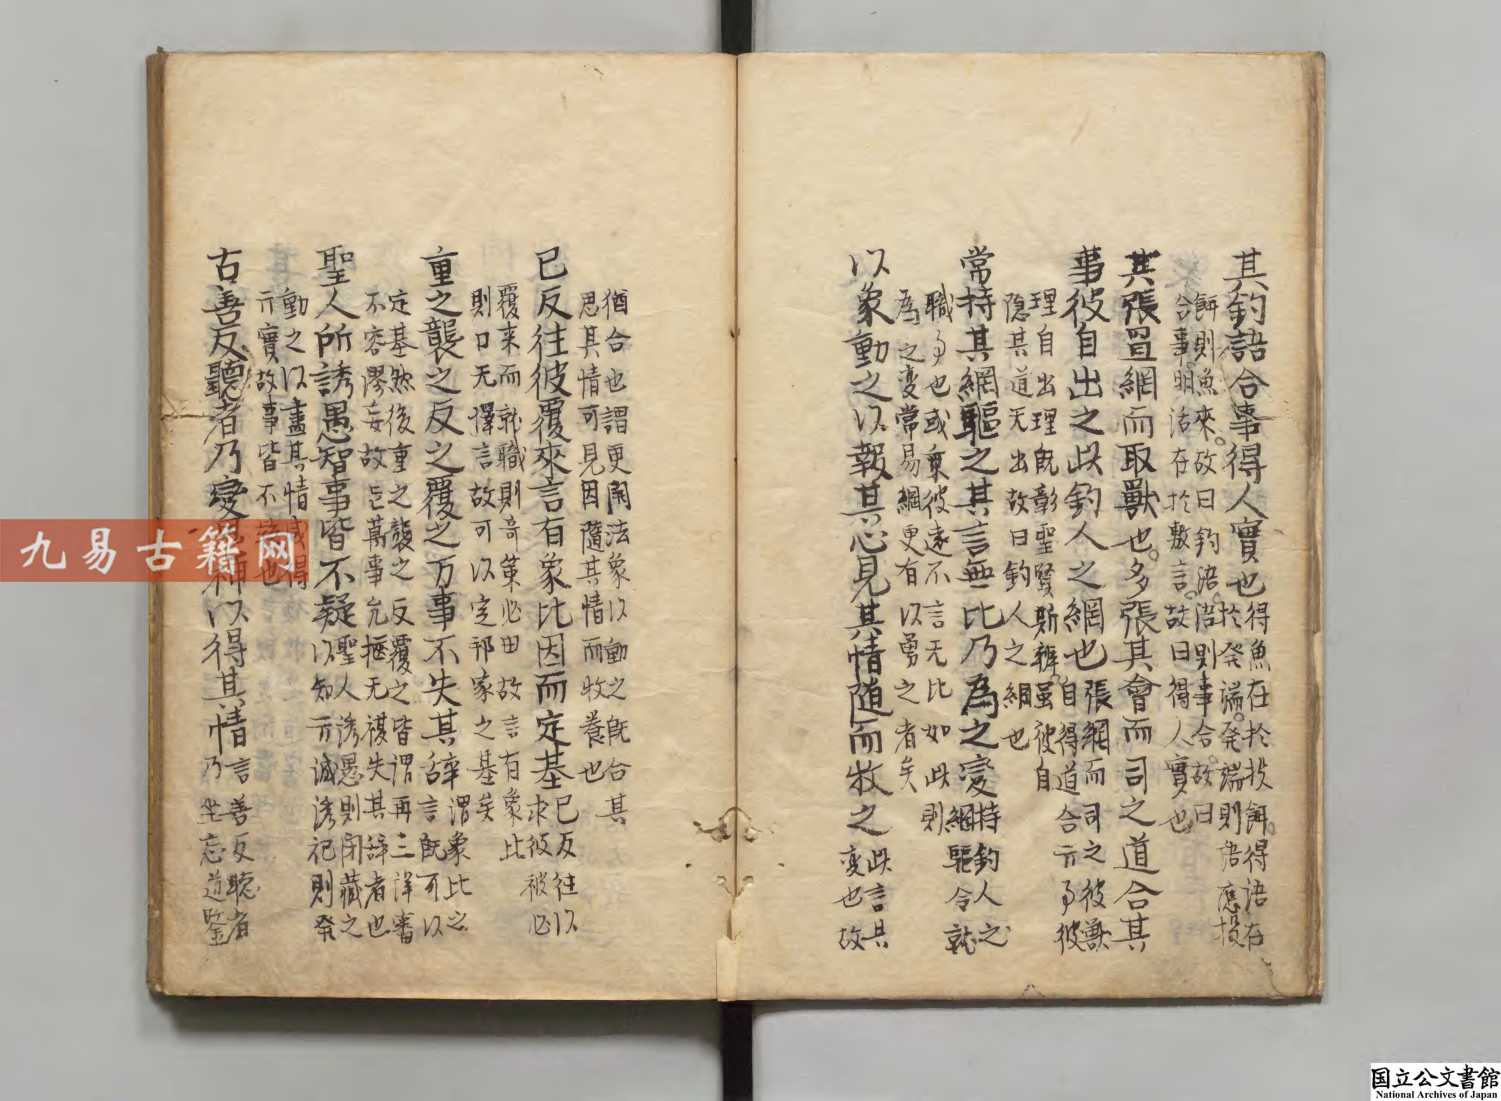 其釣語合事得人實也得魚在於投餌得語在
於発端発端則語應投
餌則魚來故曰釣語語則事合故曰
合事明活在於敷言故曰得人實也
其張罝網而取獸也多張其會而司之道合其
事彼自出之此釣人之網也張網而司之彼獸
自得道合亓事彼
理自出理既彰聖賢斯辨虽彼自
隐其道无出故曰釣人之網也
常持其網驅之其言無比乃為之変持釣人之
網驅令就
職事也或乗彼遠不言无比如此則
為之変常易網更有以勇之者矣
以象動之以報其心見其情随而牧之此言其
変也故
猶合也謂更開法象以動之既合其
思其情可見因隨其情而牧養也
已反往彼覆來言有象比因而定基已反往以
求彼彼必
覆来而就職則竒策必田故言有象比
則口无擇言故可以定邦家之基矣
重之襲之反之覆之万事不失其辞謂象比之
言既可以
定基然後重之襲之反覆之皆謂再三詳審
不容謬妄故万事无失其辞者也
聖人所誘愚智事皆不疑聖人誘愚則閉藏之
以知亓誠誘祀則発
動之以盡其情咸得
亓實故事皆不疑也
古善反聽者乃変鬼神以得其情言善反聴者
乃坐忘遁鑒
九易古籍网
国立公文書館
National Archives of Japan